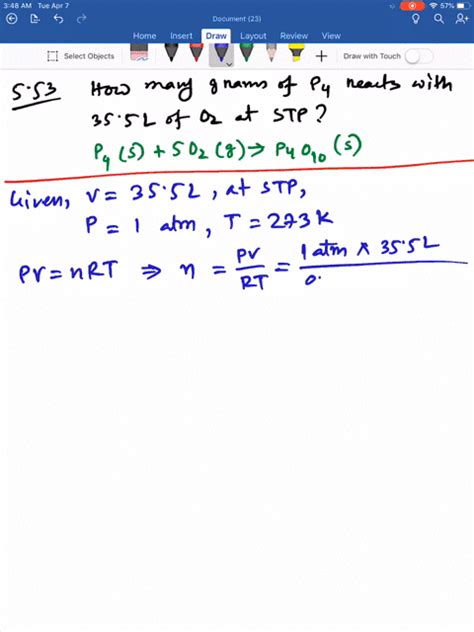 3:48 AM Tue Apr 7
57%
Document (23)
Home Insert Draw Layout Review View
Select Objects
Draw with Touch
5.53 How many grams of P4 reacts with
35.5L of O2 at STP?
P4 (s) + 5O2 (g) → P4O10 (s)
Given, V = 35.5L, at STP,
P = 1 atm, T = 273 K
PV = nRT ⇒ n = PV/RT = 1 atm × 35.5L / 0.